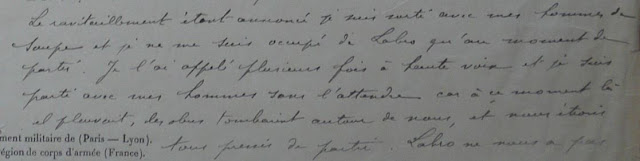 Le ravitaillement étant annoncé je suis sorti avec mes hommes de
soupe et je ne me suis occupé de Labro qu'au moment de
partir. Je l'ai appelé plusieurs fois à haute voix et je suis
parti avec mes hommes sans l'attendre car à ce moment là
il pleuvait, des obus tombaient autour de nous, et nous étions
ment militaire de (Paris — Lyon).
tous pressés de partir. Labro ne nous a pas
région de corps d'armée (France).